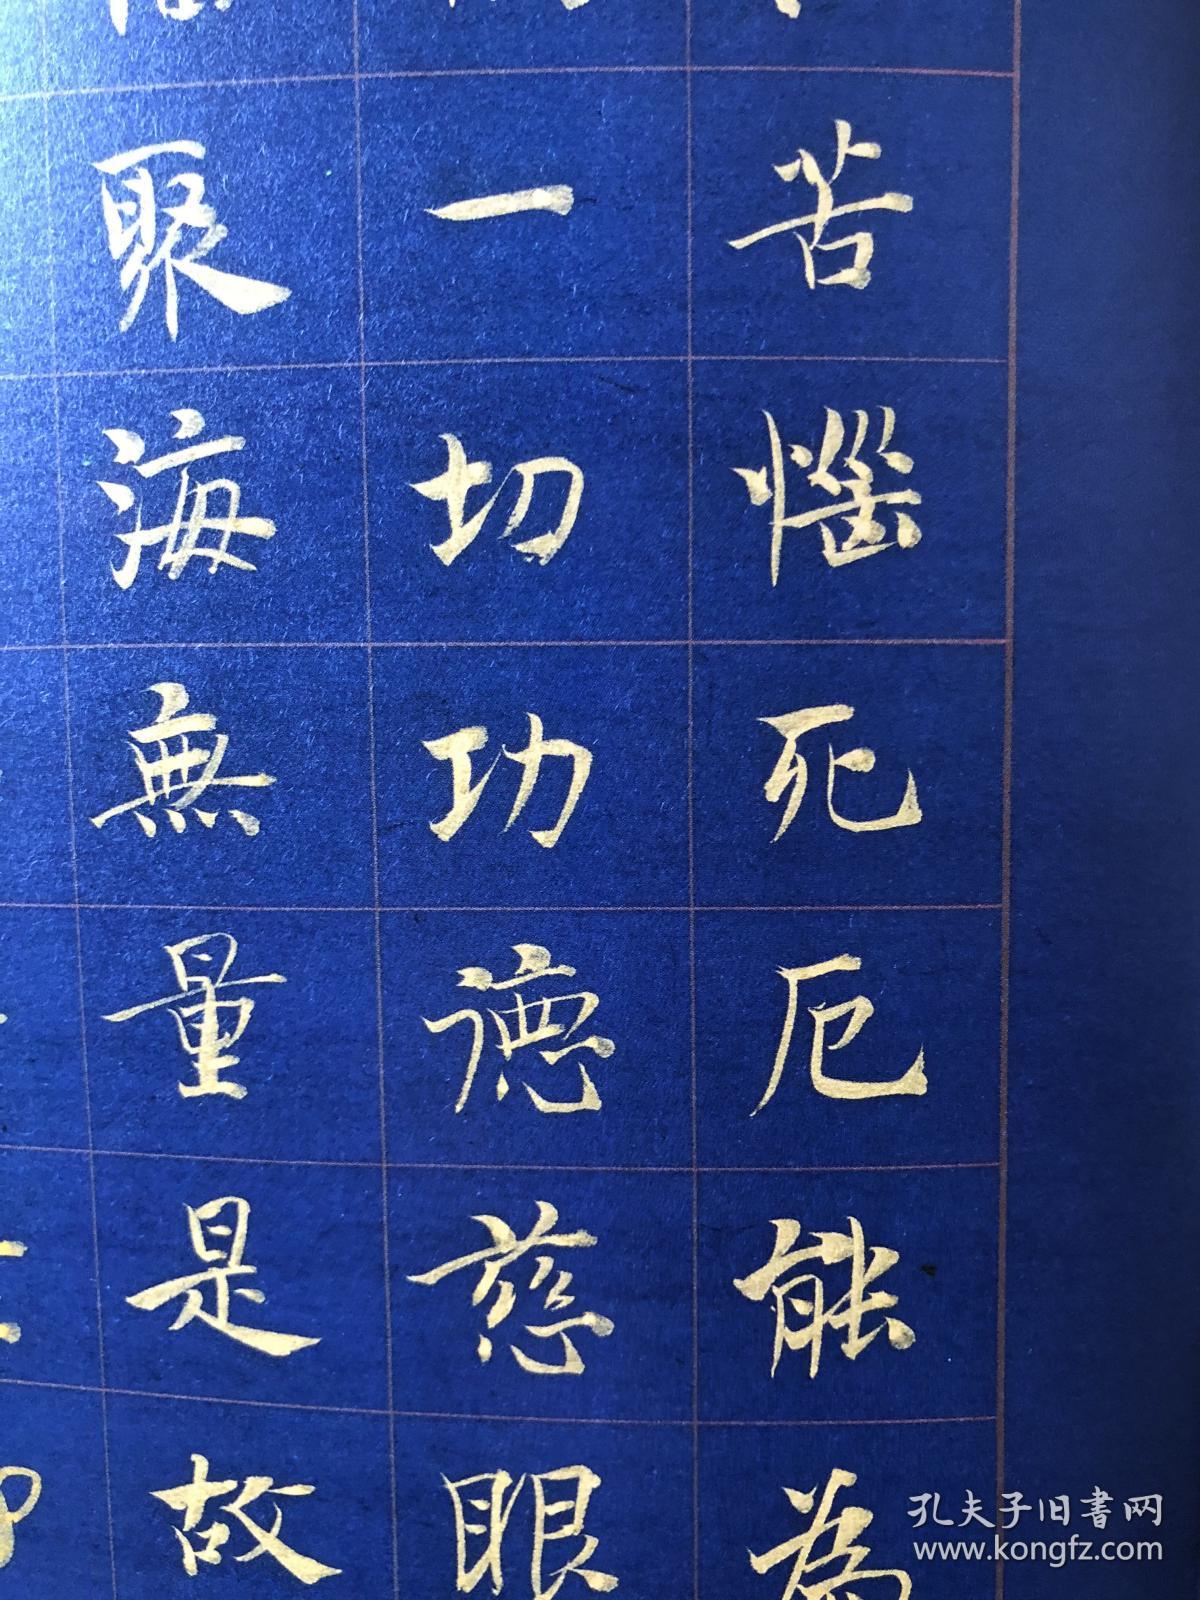 苦惱死厄能為
一切功德慈眼
聚海無量是故
孔夫子旧書网
www.kongfz.com